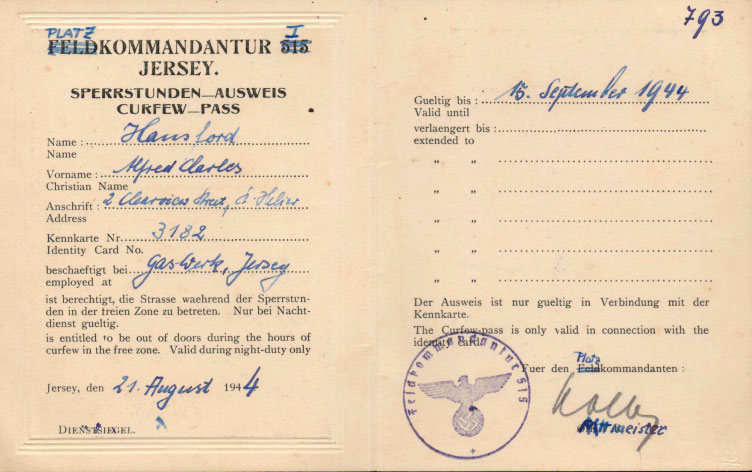 PLATZ I
FELDKOMMANDANTUR 515
JERSEY.
SPERRSTUNDEN—AUSWEIS
CURFEW—PASS
Name : Hansford
Name
Vorname : Alfred Charles
Christian Name
Anschrift : 2 Clearview Street, St. Helier
Address
Kennkarte Nr. 3182
Identity Card No.
beschaeftigt bei Gas-Werk, Jersey
employed at
ist berechtigt, die Strasse waehrend der Sperrstun-
den in der freien Zone zu betreten. Nur bei Nacht-
dienst gueltig.
is entitled to be out of doors during the hours of
curfew in the free zone. Valid during night-duty only
Jersey, den 21. August 1944
DIENSTSIEGEL.
793
Gueltig bis : 15. September 1944
Valid until
verlaengert bis :
extended to
" "
" "
" "
" "
" "
Der Ausweis ist nur gueltig in Verbindung mit der
Kennkarte.
The Curfew-pass is only valid in connection with the
identity card.
Platz
Fuer den Feldkommandanten :
Feldkommandantur 515
Rittmeister